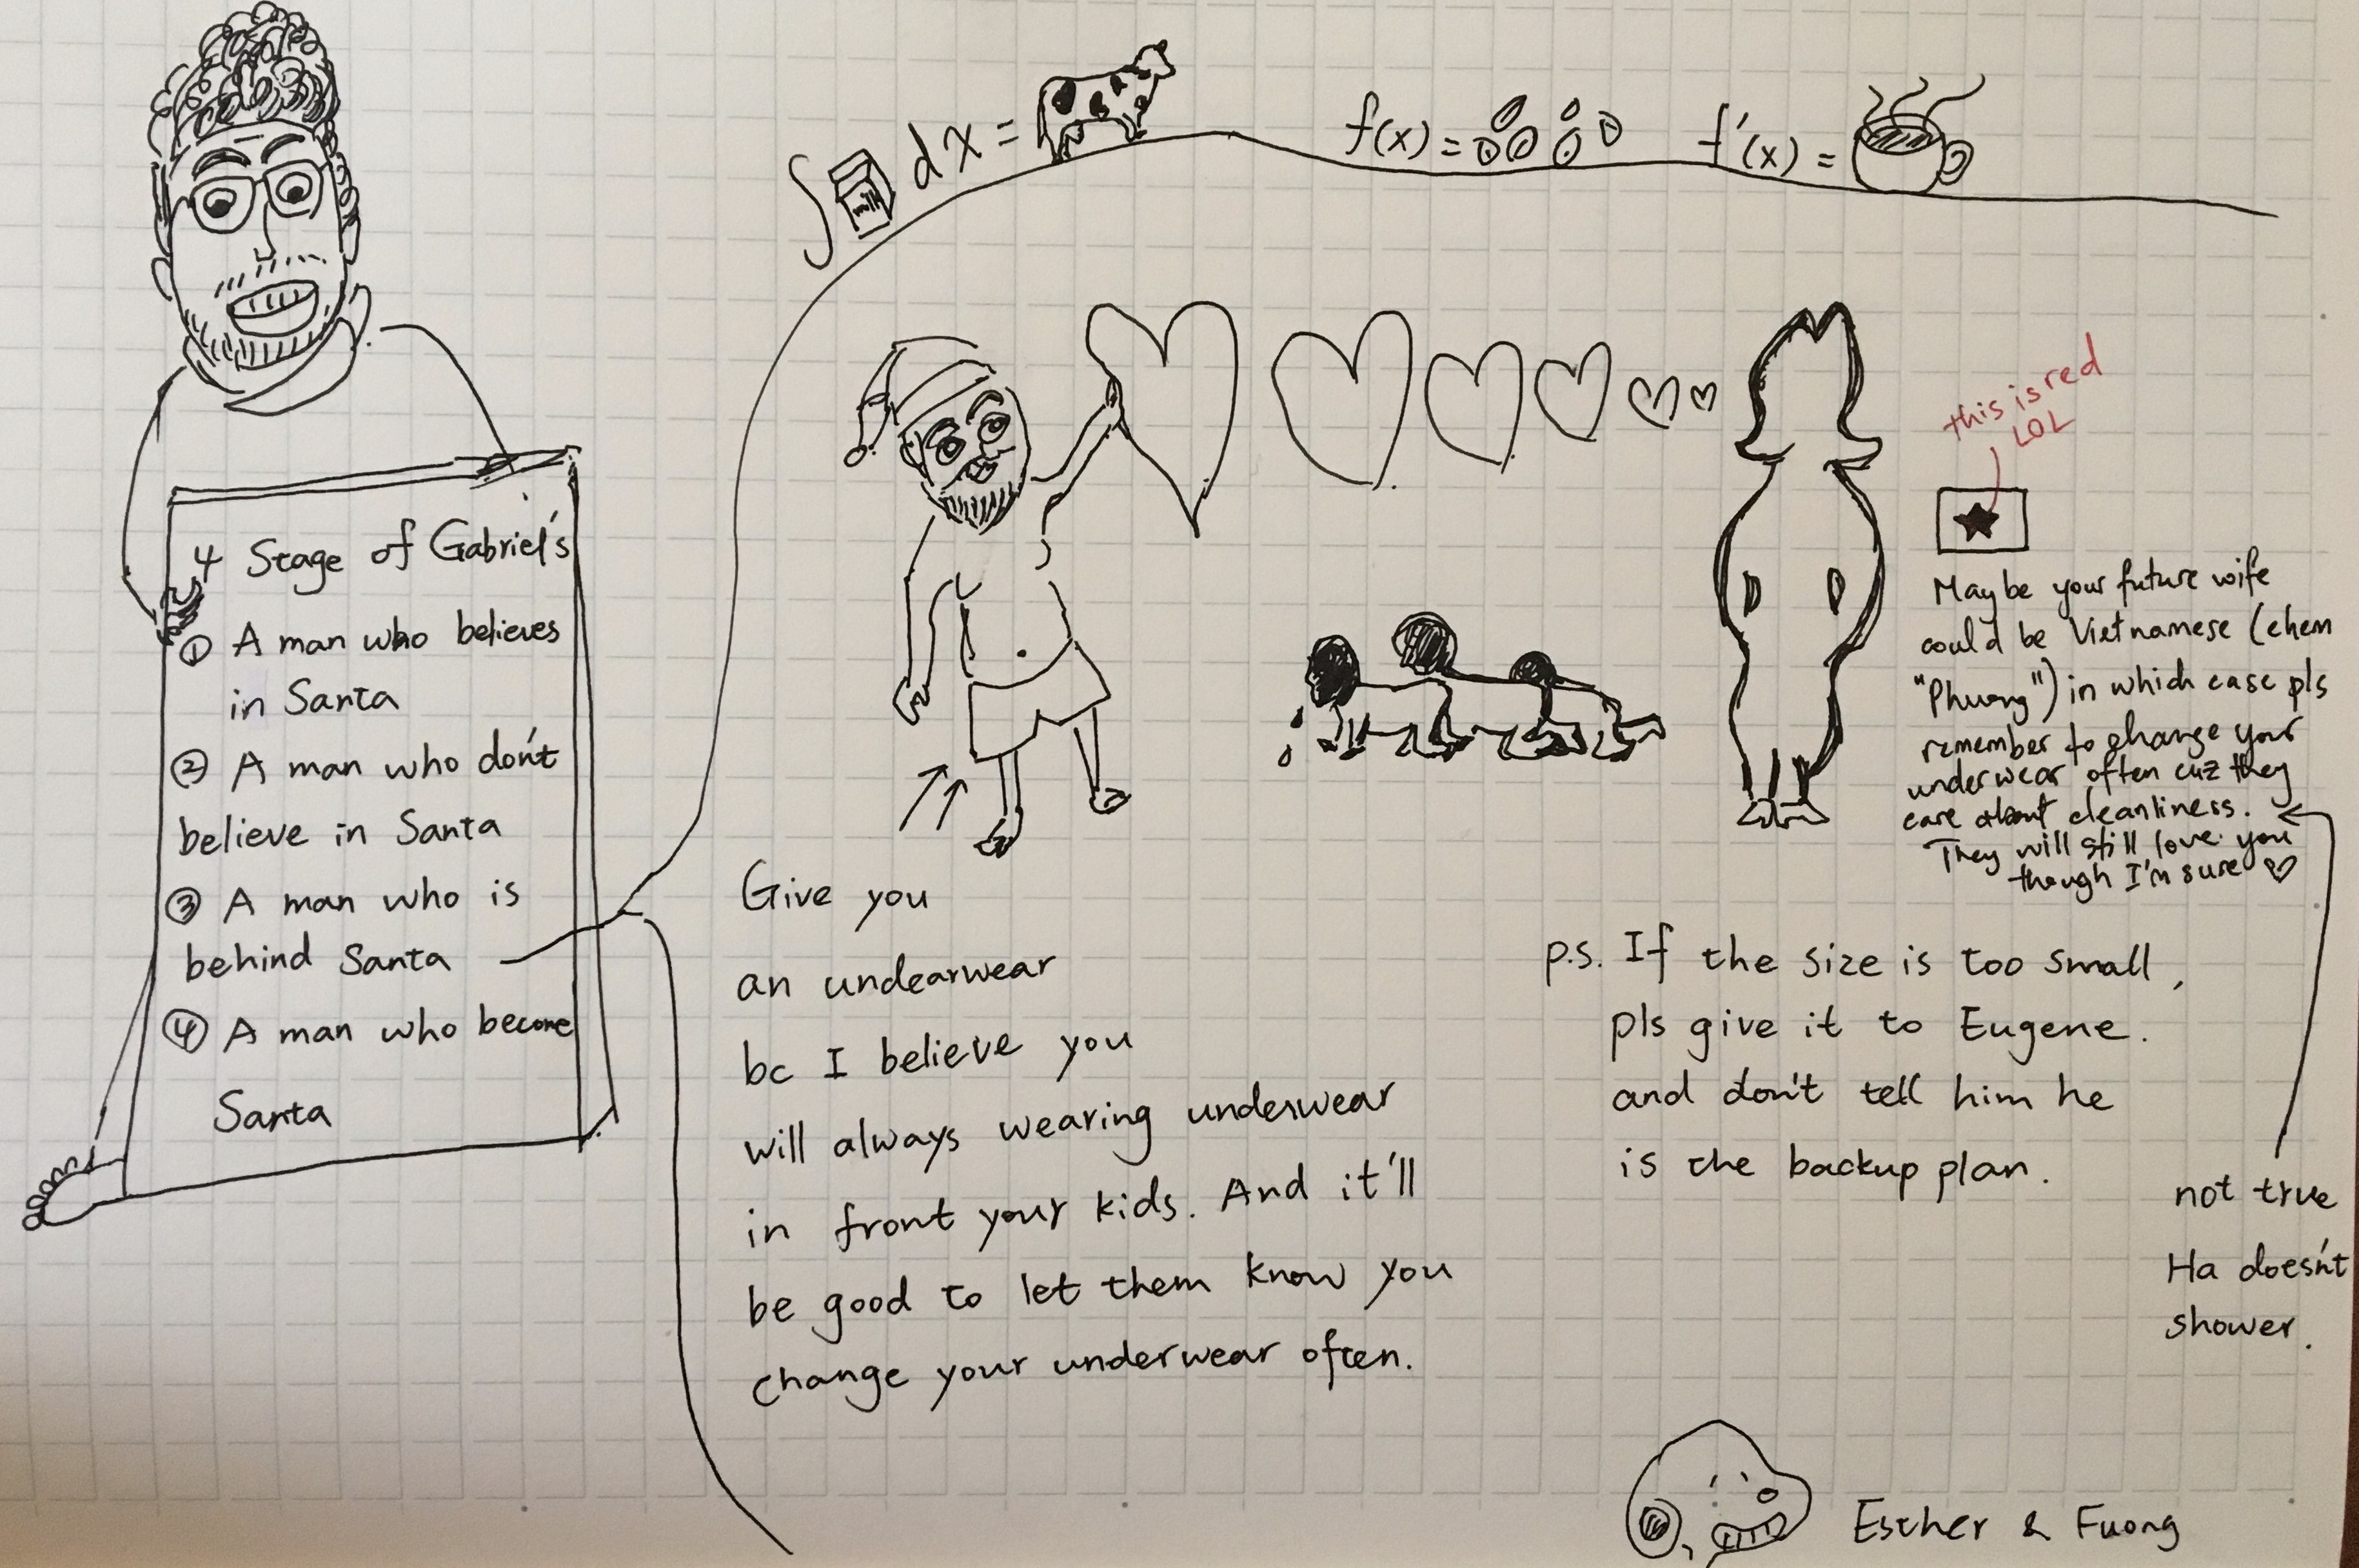 ∫ MILK dx =
f(x) =
f'(x) =
4 Stage of Gabriel's
① A man who believes
in Santa
② A man who don't
believe in Santa
③ A man who is
behind Santa
④ A man who become
Santa
this is red
LOL
Maybe your future wife
could be Vietnamese (ehem
"Phuong") in which case pls
remember to change your
underwear often cuz they
care about cleanliness.
They will still love you
though I'm sure ♡
Give you
an undearwear
bc I believe you
will always wearing underwear
in front your kids. And it'll
be good to let them know you
change your underwear often.
p.s. If the size is too small,
pls give it to Eugene.
and don't tell him he
is the backup plan.
not true
Ha doesn't
shower.
Esther & Fuong